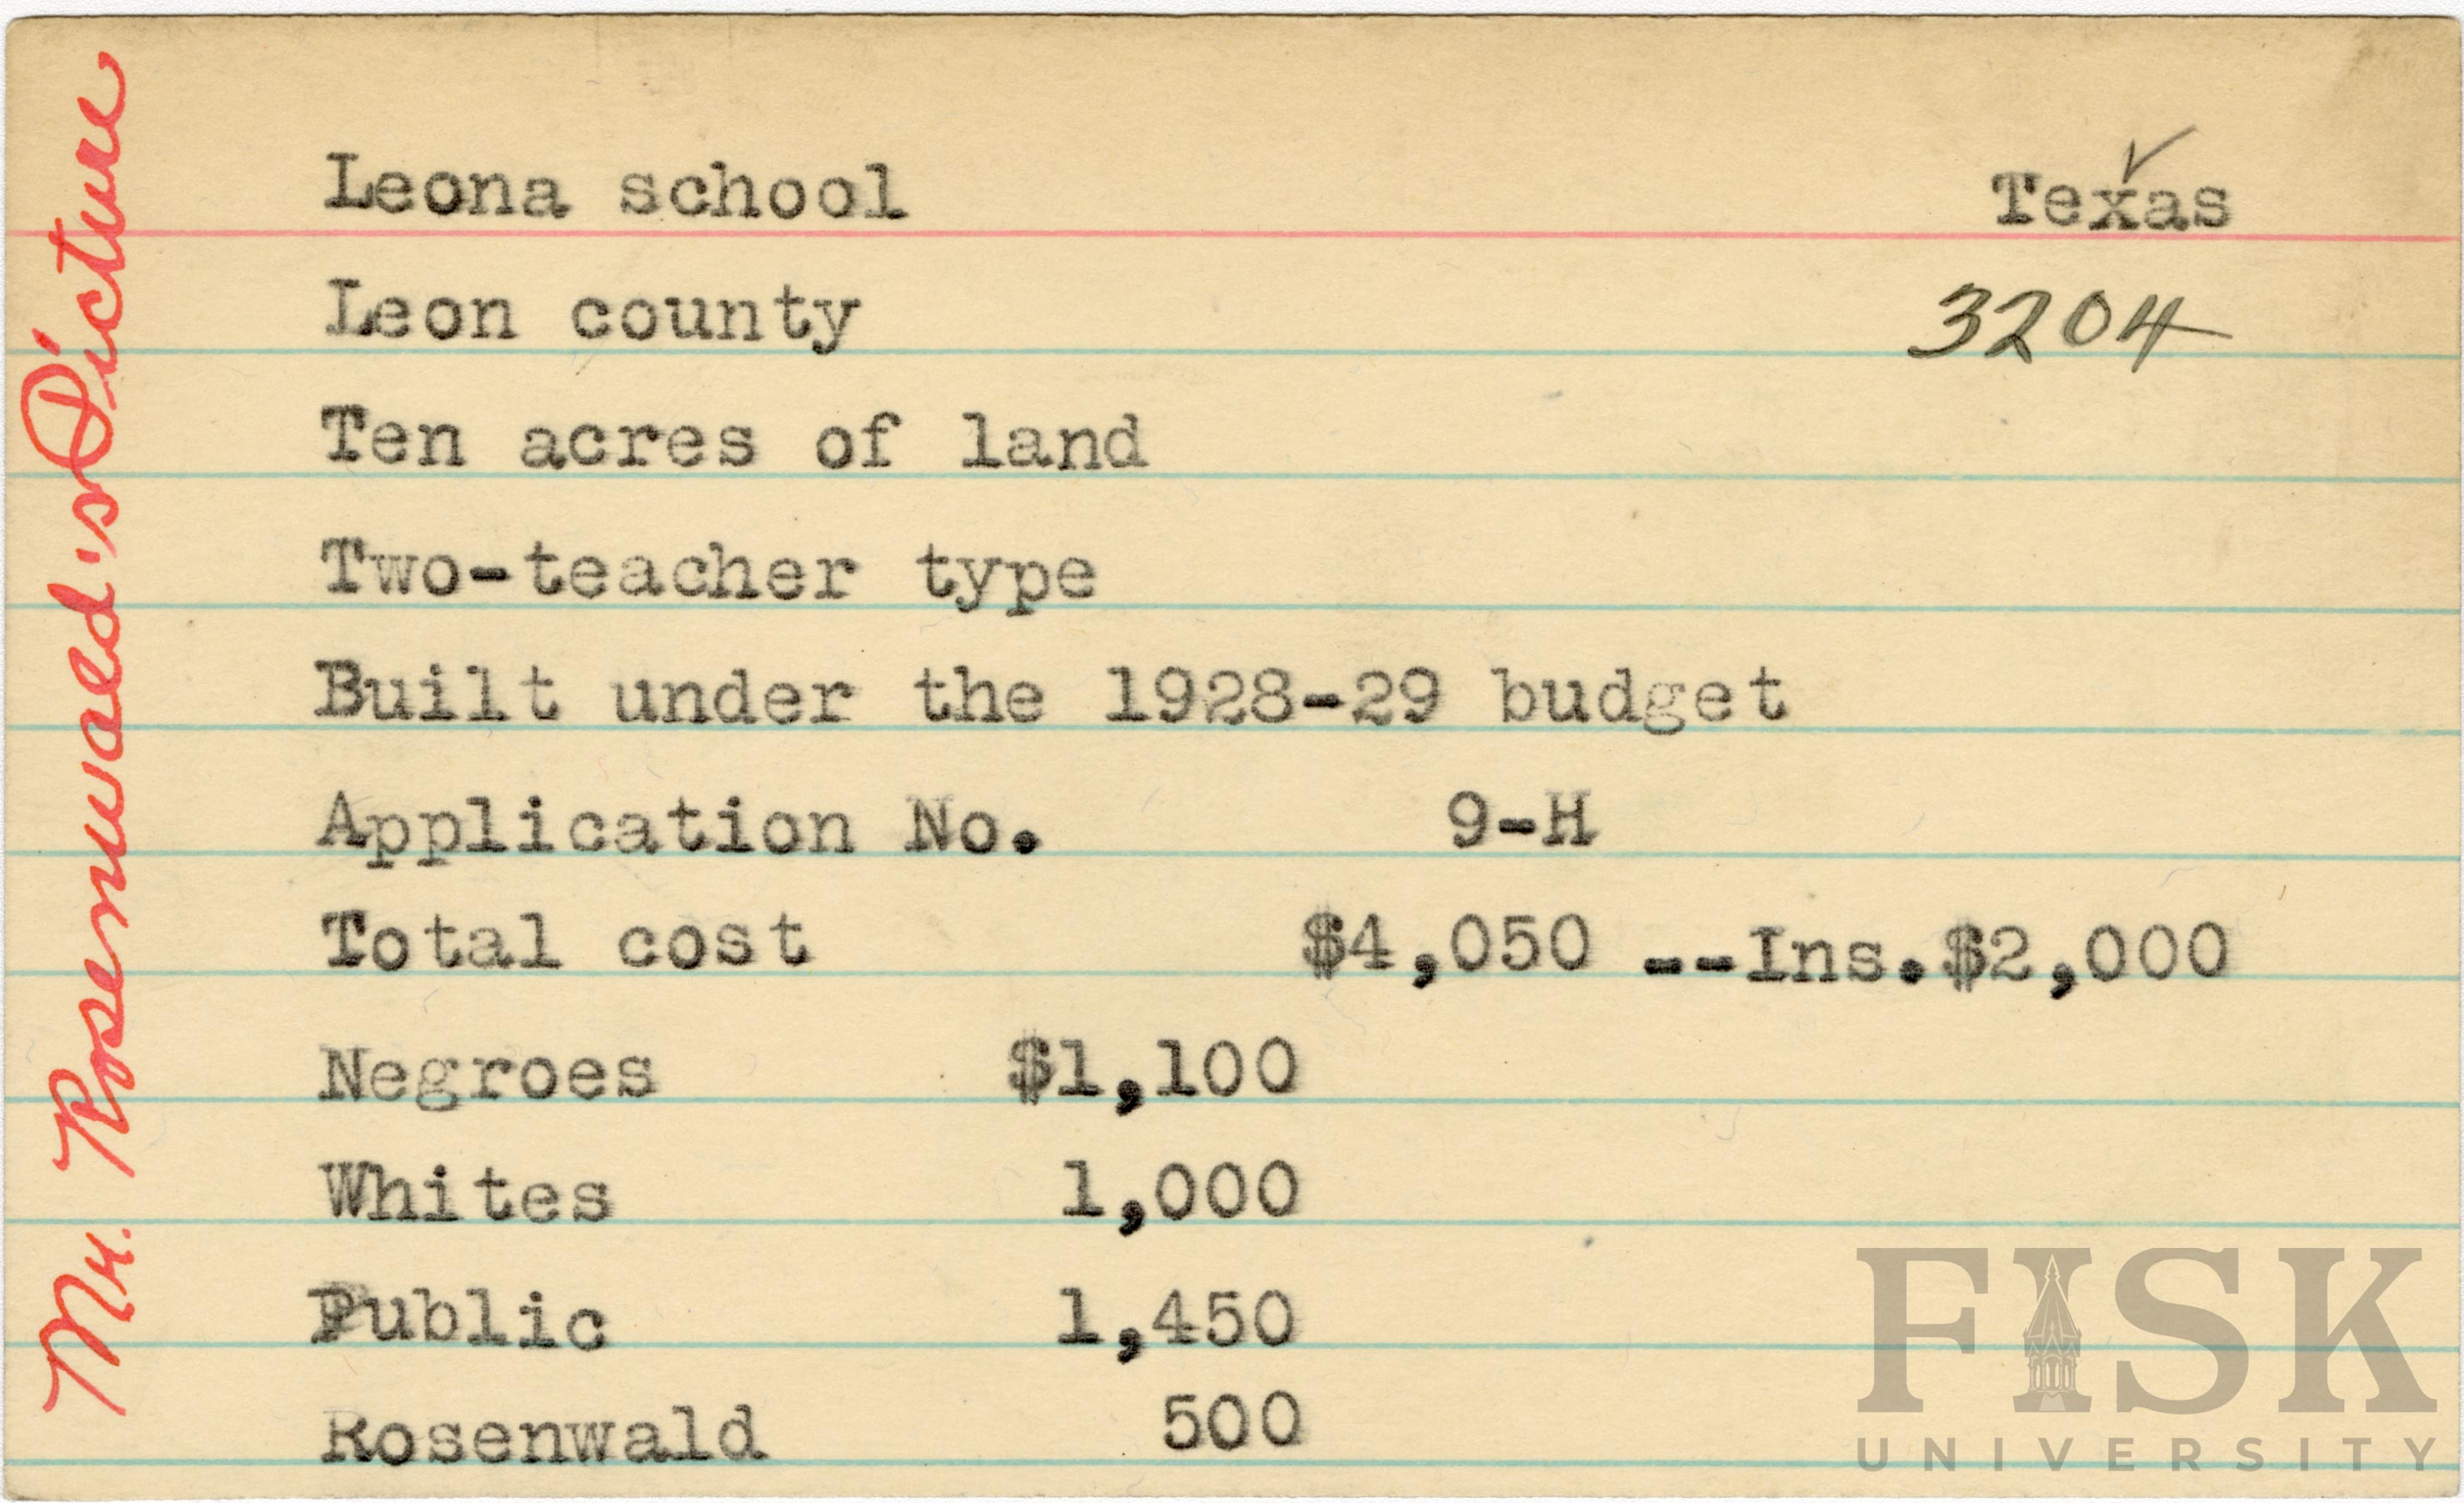 Mr. Rosenwald's Picture
Leona school Texas
Leon county 3204
Ten acres of land
Two-teacher type
Built under the 1928-29 budget
Application No. 9-H
Total cost $4,050 --Ins.$2,000
Negroes $1,100
Whites 1,000
Public 1,450
Rosenwald 500
FISK
UNIVERSITY